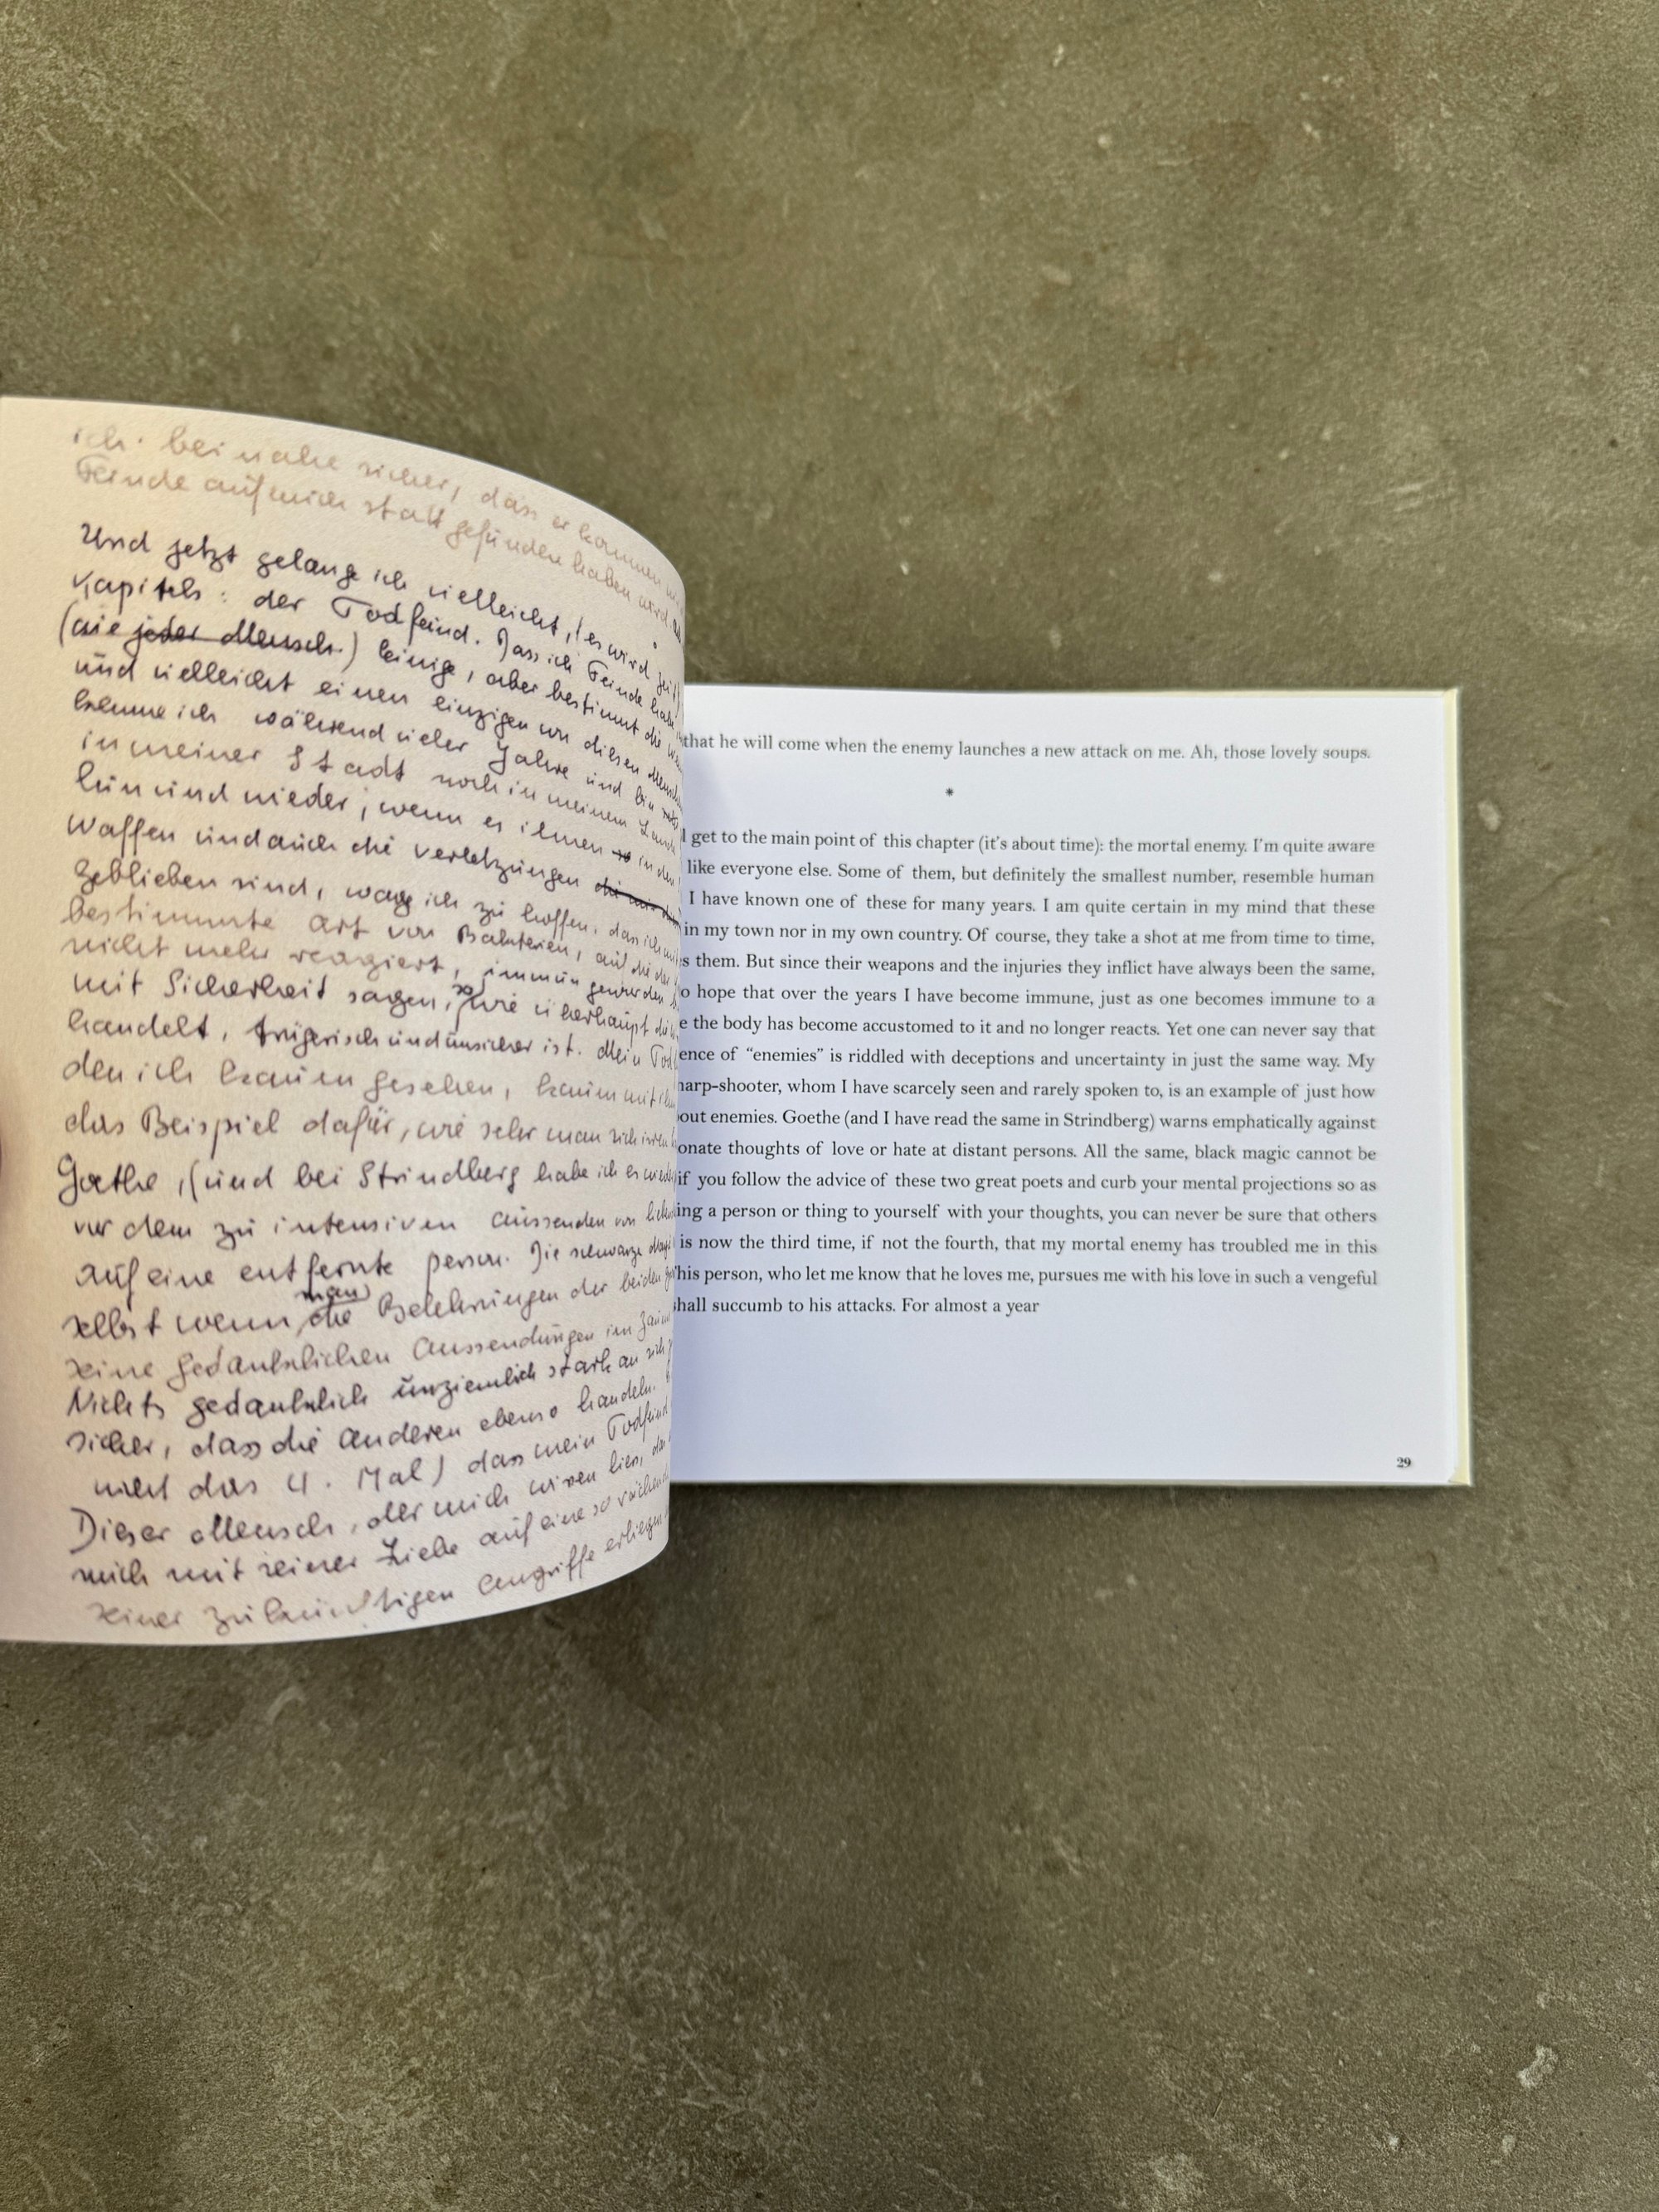 ich beinahe sicher, dass er kommen
Feinde auf mich stattgefunden haben wird,
Und jetzt gelange ich vielleicht, (es wird Zeit)
Kapitels: der Todfeind. Dass ich Feinde habe
(wie jeder Mensch) einige, aber bestimmt die
und vielleicht einen einzigen von diesen
kenne ich während vieler Jahre und bin
in meiner Stadt noch in meinem Land
hin und wieder, wenn es ihnen so in den
Waffen und auch die Verletzungen die
geblieben sind, wage ich zu hoffen, dass ich
bestimmte Art von Bakterien, auf die der
nicht mehr reagiert, immun geworden
mit Sicherheit sagen, so wie überhaupt die
handelt, trügerisch und unsicher ist. Mein
den ich kaum gesehen, kaum mit
das Beispiel dafür, wie sehr man sich
Goethe, (und bei Strindberg habe ich es
vor dem zu intensiven Aussenden von
auf eine entfernte Person. Die schwarze
selbst wenn man die Belehrungen der beiden
seine gedanklichen Aussendungen im
Nichts gedanklich unziemlich stark an sich
sicher, dass die Anderen ebenso handeln.
nicht das 4. Mal) dass mein Todfeind
Dieser Mensch, der mich wissen liess,
mich mit seiner Liebe auf eine so
seiner zukünftigen Angriffe erliegen
that he will come when the enemy launches a new attack on me. Ah, those lovely soups.
*
get to the main point of this chapter (it's about time): the mortal enemy. I'm quite aware
like everyone else. Some of them, but definitely the smallest number, resemble human
I have known one of these for many years. I am quite certain in my mind that these
in my town nor in my own country. Of course, they take a shot at me from time to time,
s them. But since their weapons and the injuries they inflict have always been the same,
o hope that over the years I have become immune, just as one becomes immune to a
e the body has become accustomed to it and no longer reacts. Yet one can never say that
ence of “enemies” is riddled with deceptions and uncertainty in just the same way. My
harp-shooter, whom I have scarcely seen and rarely spoken to, is an example of just how
out enemies. Goethe (and I have read the same in Strindberg) warns emphatically against
onate thoughts of love or hate at distant persons. All the same, black magic cannot be
if you follow the advice of these two great poets and curb your mental projections so as
ing a person or thing to yourself with your thoughts, you can never be sure that others
is now the third time, if not the fourth, that my mortal enemy has troubled me in this
This person, who let me know that he loves me, pursues me with his love in such a vengeful
shall succumb to his attacks. For almost a year
29